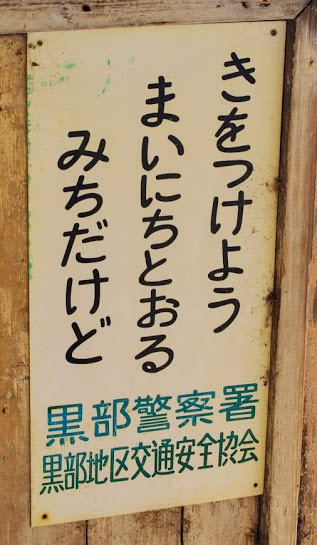 きをつけよう
まいにちとおる
みちだけど
黒部警察署
黒部地区交通安全協会